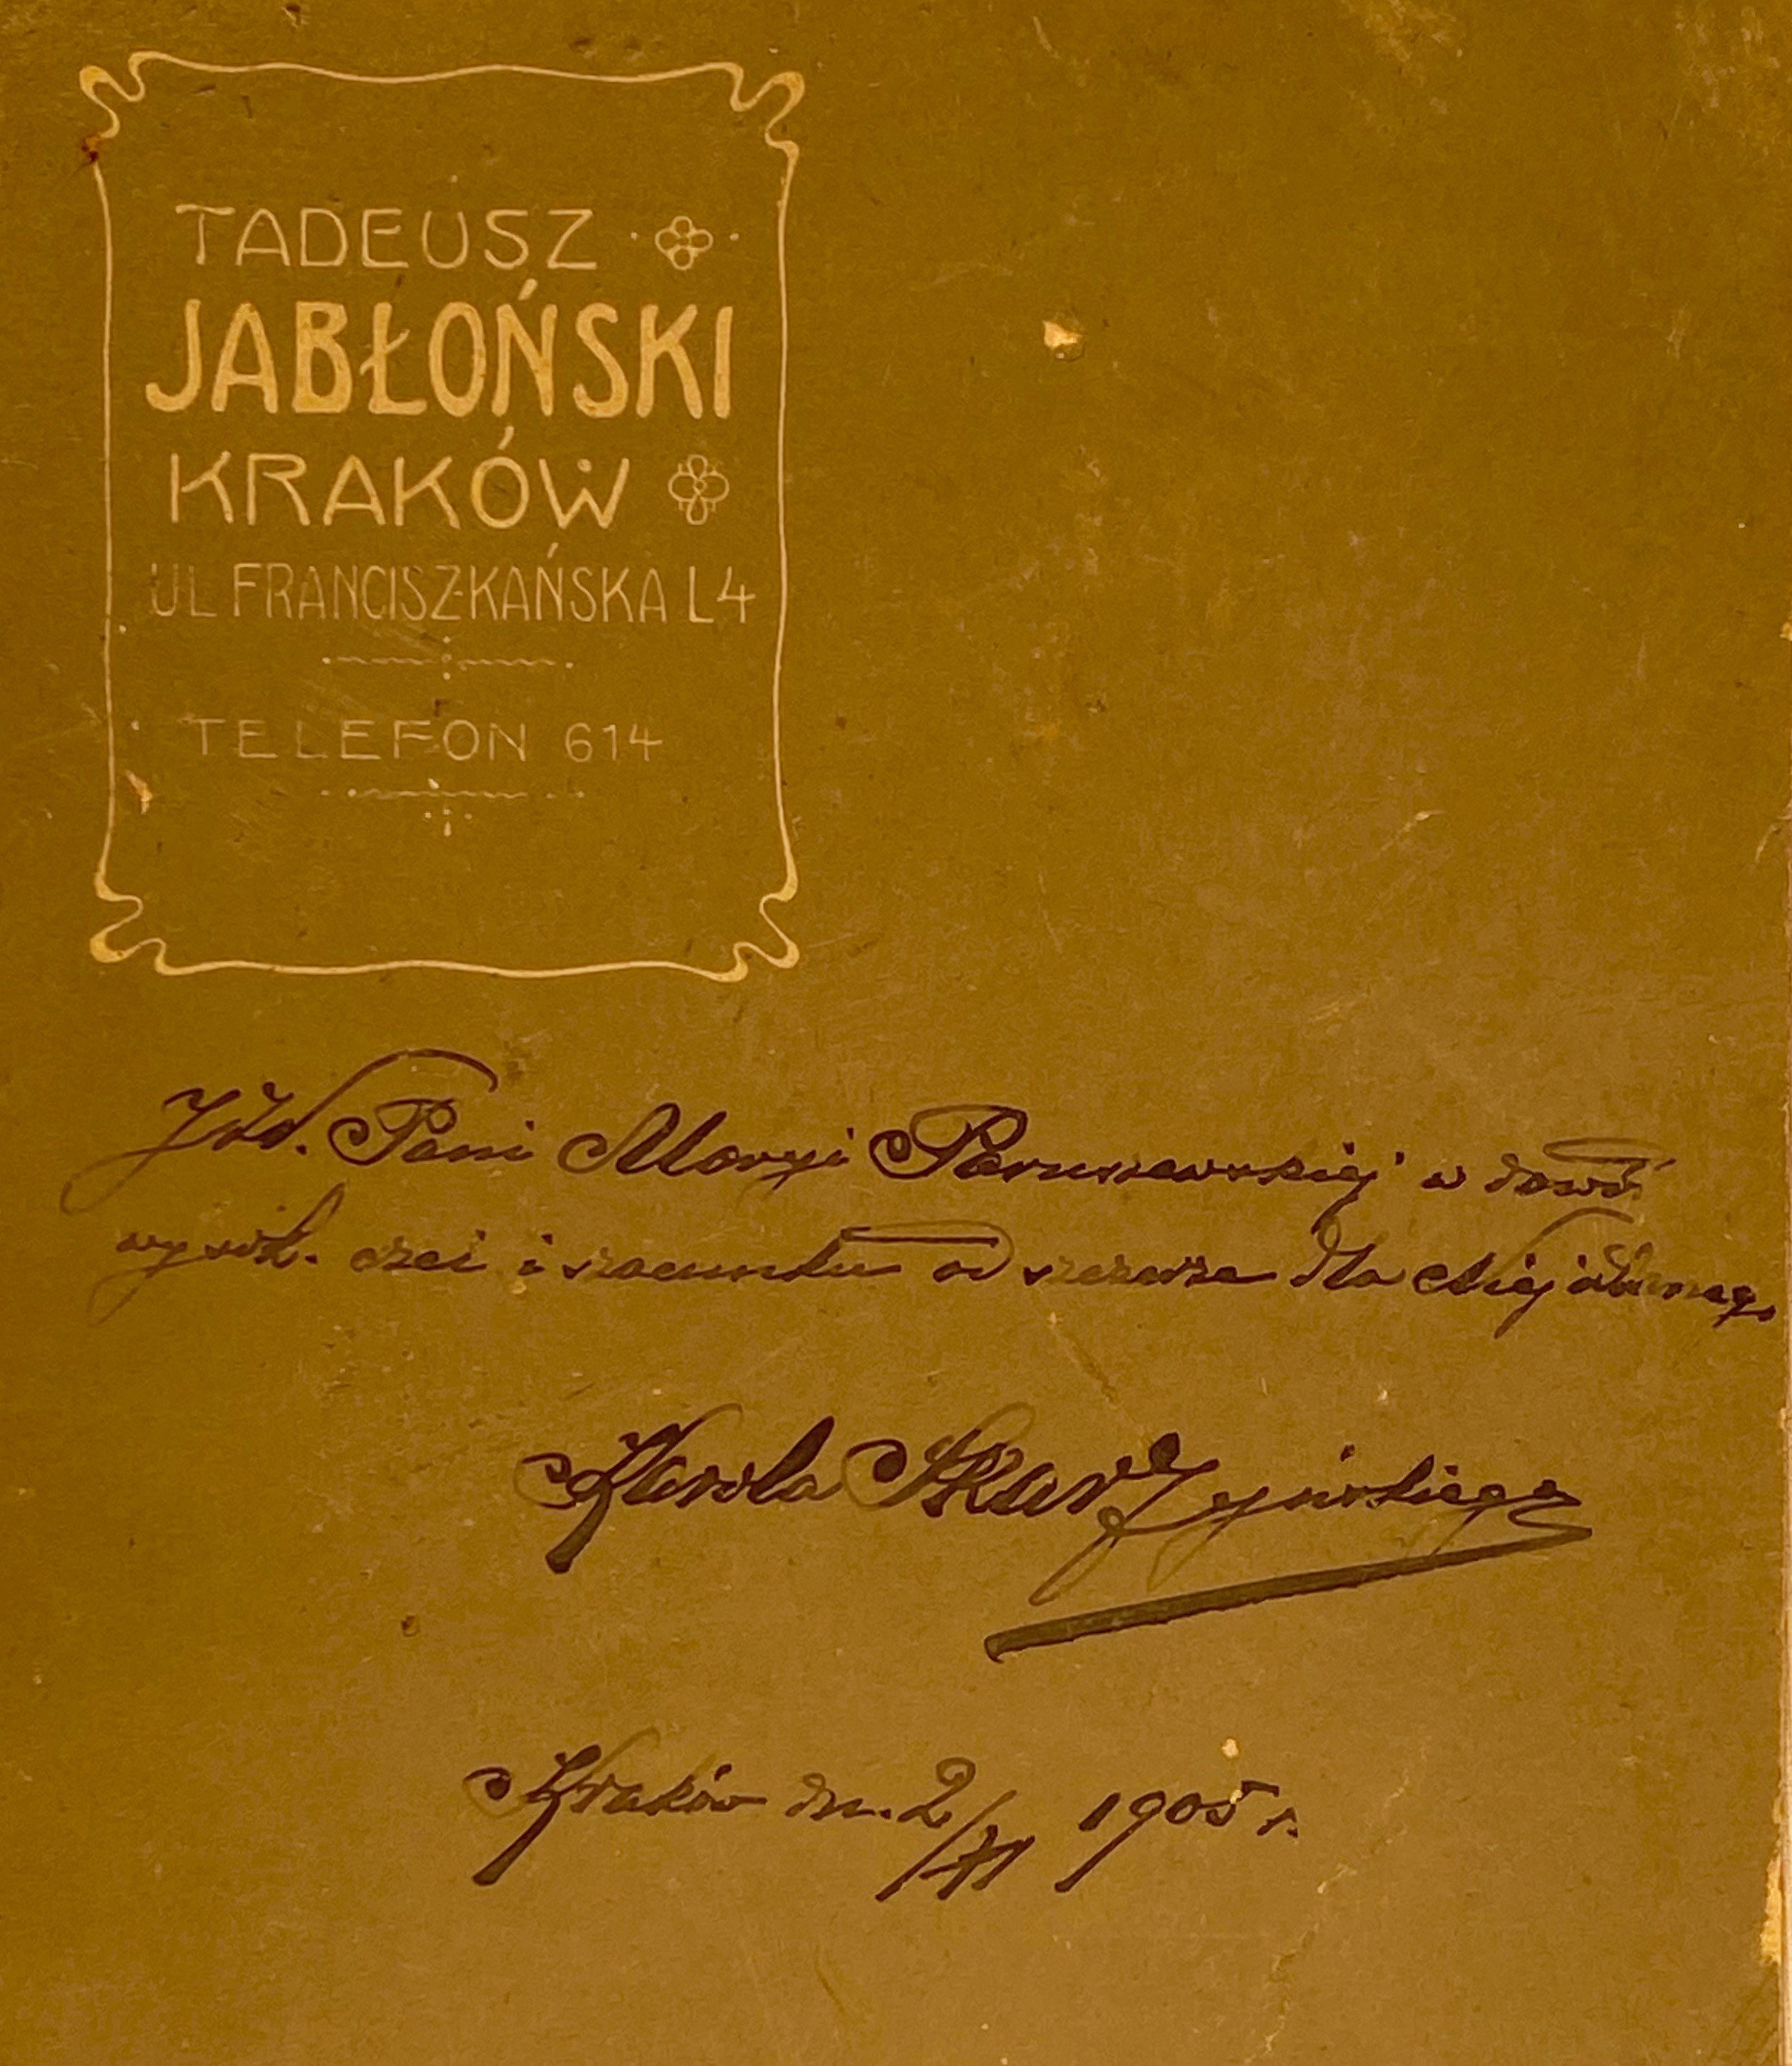 TADEUSZ
JABŁOŃSKI
KRAKÓW
UL FRANCISZKAŃSKA L4
TELEFON 614
JWP. Pani Maryi Paruszewskiej w dowód
wysok. czci i szacunku od szczerze dla Niej
Karola Skarzyńskiego
Kraków dn. 2/XI 1905 r.